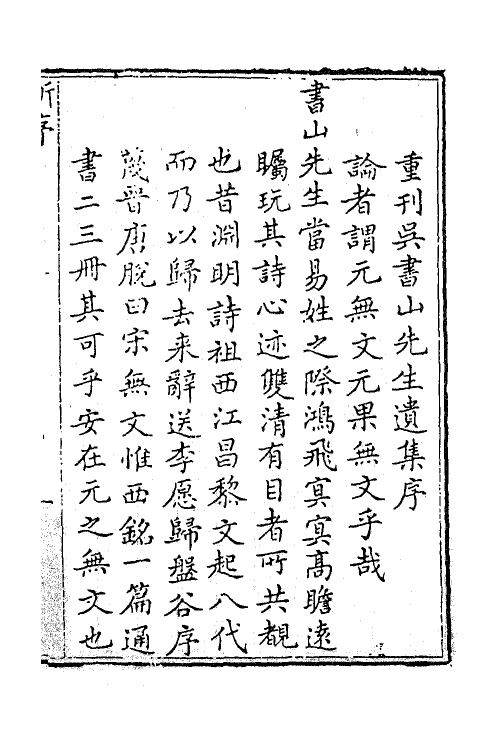 重刊吳書山先生遺集序
論者謂元無文元果無文乎哉
書山先生當易姓之際鴻飛冥冥高瞻遠
矚玩其詩心迹雙清有目者所共覩
也昔淵明詩祖西江昌黎文起八代
而乃以歸去来辭送李愿歸盤谷序
蔑晉唐脫曰宋無文惟西銘一篇通
書二三冊其可乎安在元之無文也
序